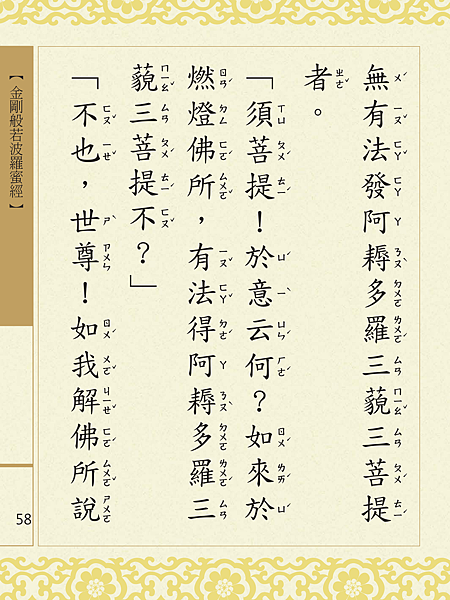 無有法發阿耨多羅三藐三菩提
者。
「須菩提！於意云何？如來於
燃燈佛所，有法得阿耨多羅三
藐三菩提不？」
「不也，世尊！如我解佛所說
【金剛般若波羅蜜經】
58